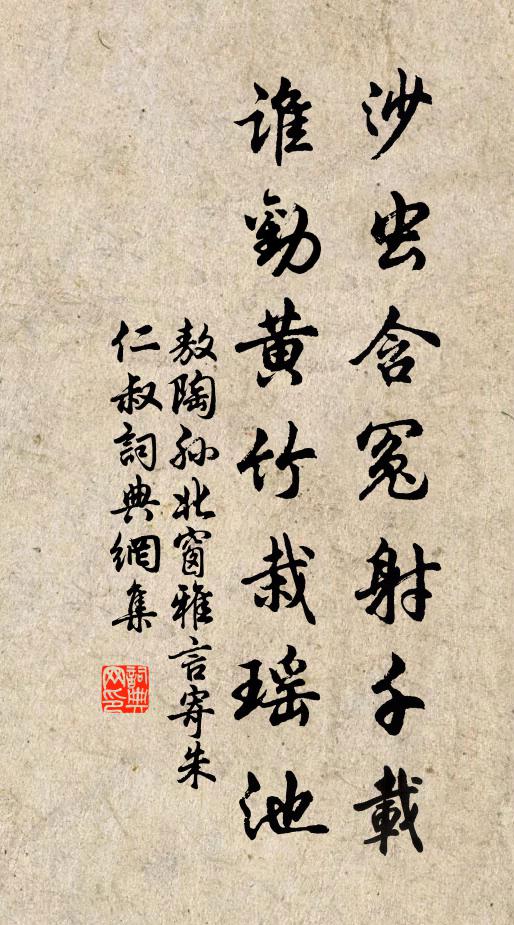 沙虫含冤射千載
谁勸黄竹栽瑶池
敖陶孙北窗雅言寄朱
仁叔詞典網集
詞典
网印